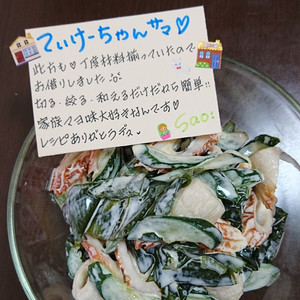 てぃけーちゃんサマ♡
此方も♡丁度材料揃っていたので
お借りしました
切る・絞る・和えるだけだから簡単!!
家族マヨ味大好きなんです♡
レシピありがとうデス
sao: